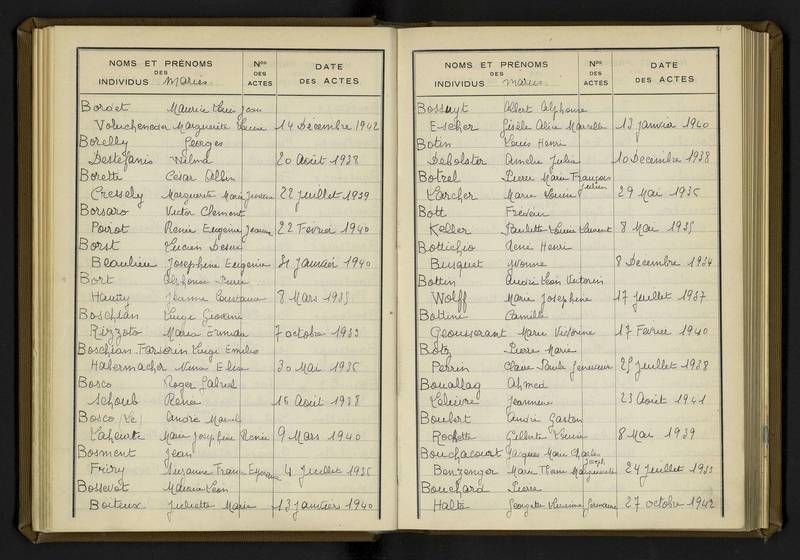 NOMS ET PRÉNOMS
DES
INDIVIDUS mariés
Nos
DES
ACTES
DATE
DES ACTES
Bordet Maurice Louis Jean
Marguerite 14 Décembre 1942
Borelly Georges
Destefanis Wilma 20 Août 1938
Borette César Albin
Cressely Marguerite Marie 22 Juillet 1939
Borsaro Victor Clément
Poirot Renée Eugénie Jeanne 22 Février 1940
Borst Lucien Désiré
Beaulieu Joséphine Eugénie 31 Janvier 1940
Bort Alphonse
Jeanne 8 Mars 1935
Boschian Luigi Giovanni
Rizzoto Maria 7 octobre 1933
Boschian Luigi Emilio
Habermacher Nina Elia 30 Mai 1936
Bosco Roger Gabriel
Schoub René 16 Août 1938
Bosco (Le) André Marcel
Laheurte Marie Joséphine Renée 9 Mars 1940
Bosment Jean
Friry Suzanne 4 Juillet 1935
Bossevot Maurice Léon
Boiteux Juliette Marie 13 janvier 1940
NOMS ET PRÉNOMS
DES
INDIVIDUS mariés
Nos
DES
ACTES
DATE
DES ACTES
Bossuyt Albert Alphonse
Escher Gisèle Alice Marcelle 13 janvier 1940
Botin Louis Henri
Debolster Amélie Julia 10 Décembre 1938
Botrel Pierre Marie François
Julien
Larcher Marie Louise 29 Mai 1935
Bott Frédéric
Keller Paulette Louise 8 Mai 1935
Botticchio René Henri
Busquet Yvonne 8 Décembre 1934
Bottin André Léon Victorin
Wolff Marie Josephine 17 Juillet 1937
Bottine Camille
Marie Victorine 17 Février 1940
Botz Pierre Marie
Perrin Claire Paule Geneviève 25 Juillet 1938
Bouallag Ahmed
Lelievre Jeannine 23 Août 1941
Boubert André Gaston
Rochette Gilberte Louise 8 Mai 1939
Bouchacourt Jacques Marie Charles
Joseph
Benzenger Marie Thérèse Marguerite 24 Juillet 1933
Bouchard Pierre
Halté Georgette Germaine 27 octobre 1942